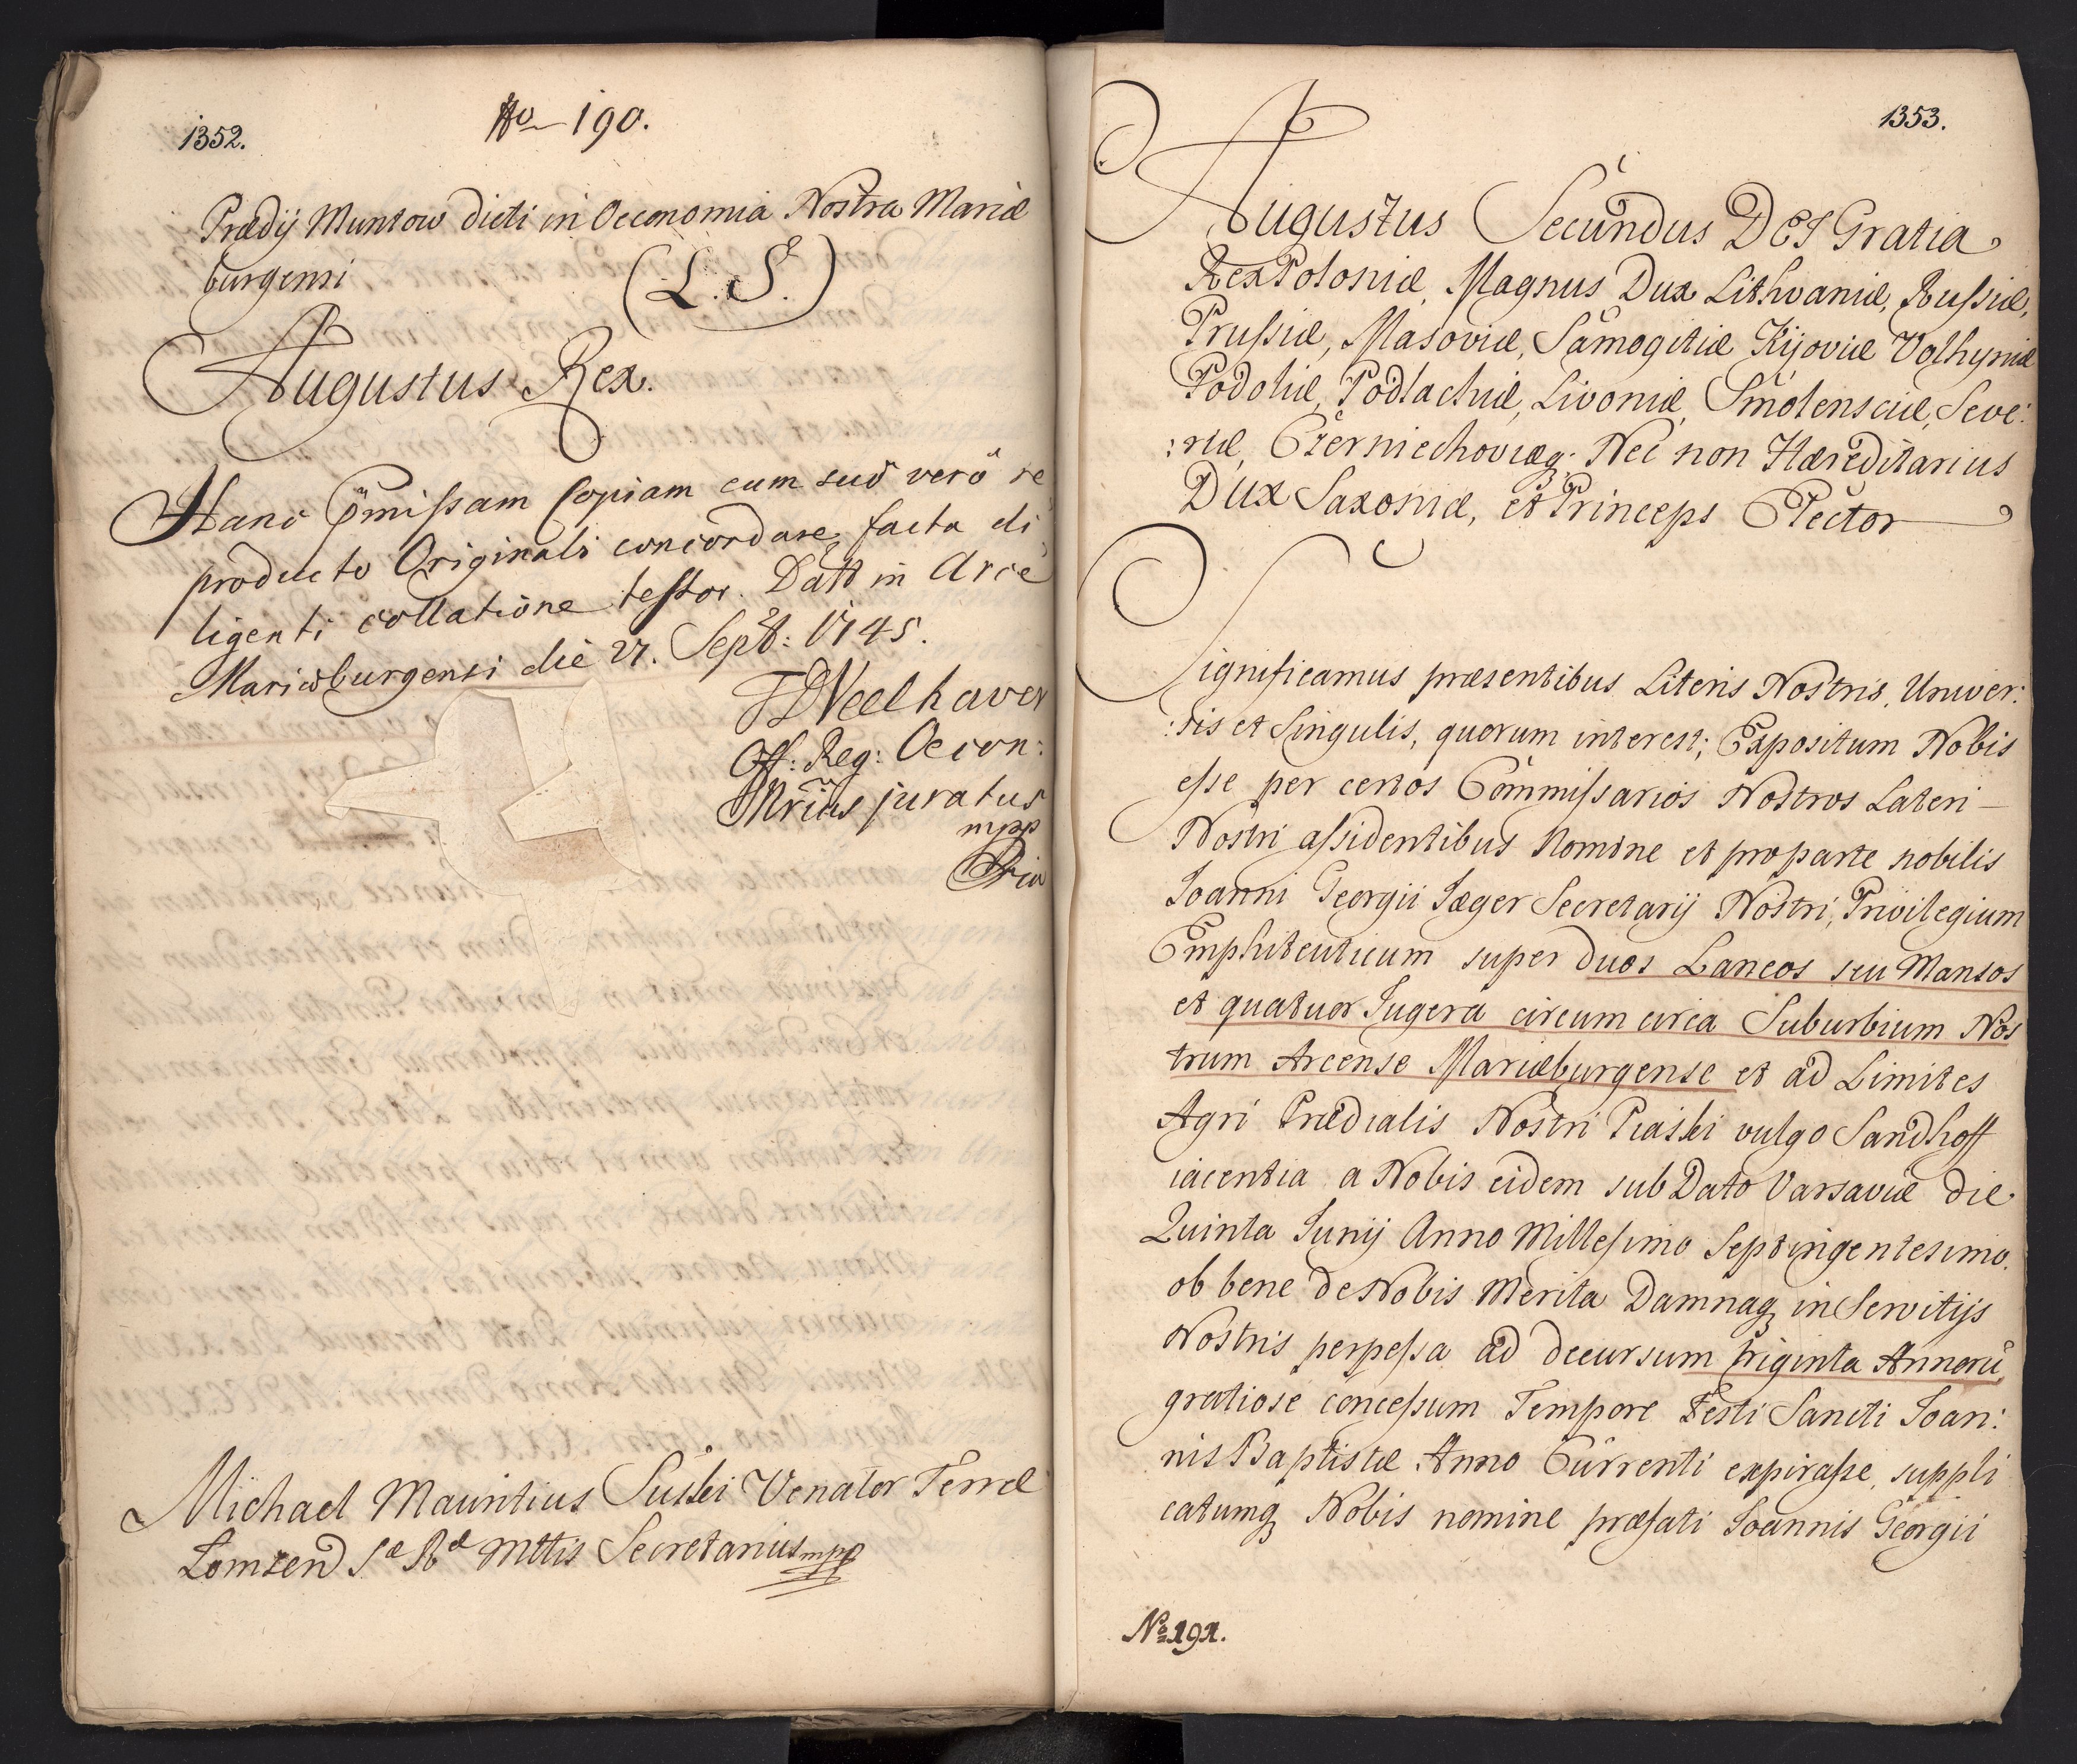 1352.
No 190.
Prædij Muntow dicti in Oeconomia Nostra Mariæ
burgensi
(L. S.)
Augustus Rex.
Hanc p̃missam Copiam cum suo vero re
producto Originali concordare facta di
ligenti collatione testor. Datt in Arce
Mariæburgensi die 27. Septb: 1745.
Neelhaver
Off: Reg: Oecon:
juratus
mpp
Michael Mauritius Suski Venator Terræ
Lomzen Sæ Ræ Mttis Secretarius mpp
1353.
Augustus Secundus DEI Gratia
Rex Poloniæ, Magnus Dux Lithvaniæ, Russiæ,
Prussiæ, Masoviæ, Samogitiæ Kijoviæ Volhyniæ
Podoliæ, Podlachiæ, Livoniæ, Smolensciæ, Seve:
:riæ, Czerniechoviæq; Nec non Hæreditarius
Dux Saxoniæ, et Princeps Elector
Significamus præsentibus Literis Nostris, Univer:
:sis et Singulis, quorum interest; Expositum Nobis
esse per certos Commissarios Nostros Lateri
Nostri assidentibus Nomine et pro parte nobilis
Joanni Georgii Jæger Secretarij Nostri, Privilegium
Emphiteuticum super duos Laneos seu Mansos
et quatuor Jugera circum circa Suburbium Nos
trum Arcense Mariæburgense et ad Limites
Agri Prædialis Nostri Piaski vulgo Sandhoff
iacentia a Nobis eidem sub Dato Varsaviæ die
Quinta Junij Anno Millesimo Septingentesimo.
ob bene de Nobis Merita Damnaq; in Servitijs
Nostris perpessa ad decursum triginta Annorũ
gratiose concessum Tempore Festi Sancti Joan:
nis Baptistæ Anno Currenti expirasse, suppli
catumq; Nobis nomine præfati Joannis Georgii
No 191.